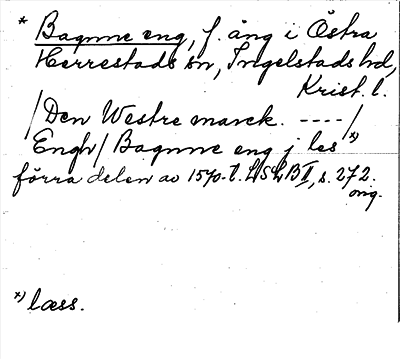 * Bagnne eng, f. äng i Östra
Herrestads sn, Ingelstads hd,
Krist. l.
/Den Westre marck. ----/
Engh/ Bagnne eng j les *)
förra delen av 1570-t. LSLB II, s. 272.
orig.
*) læss.